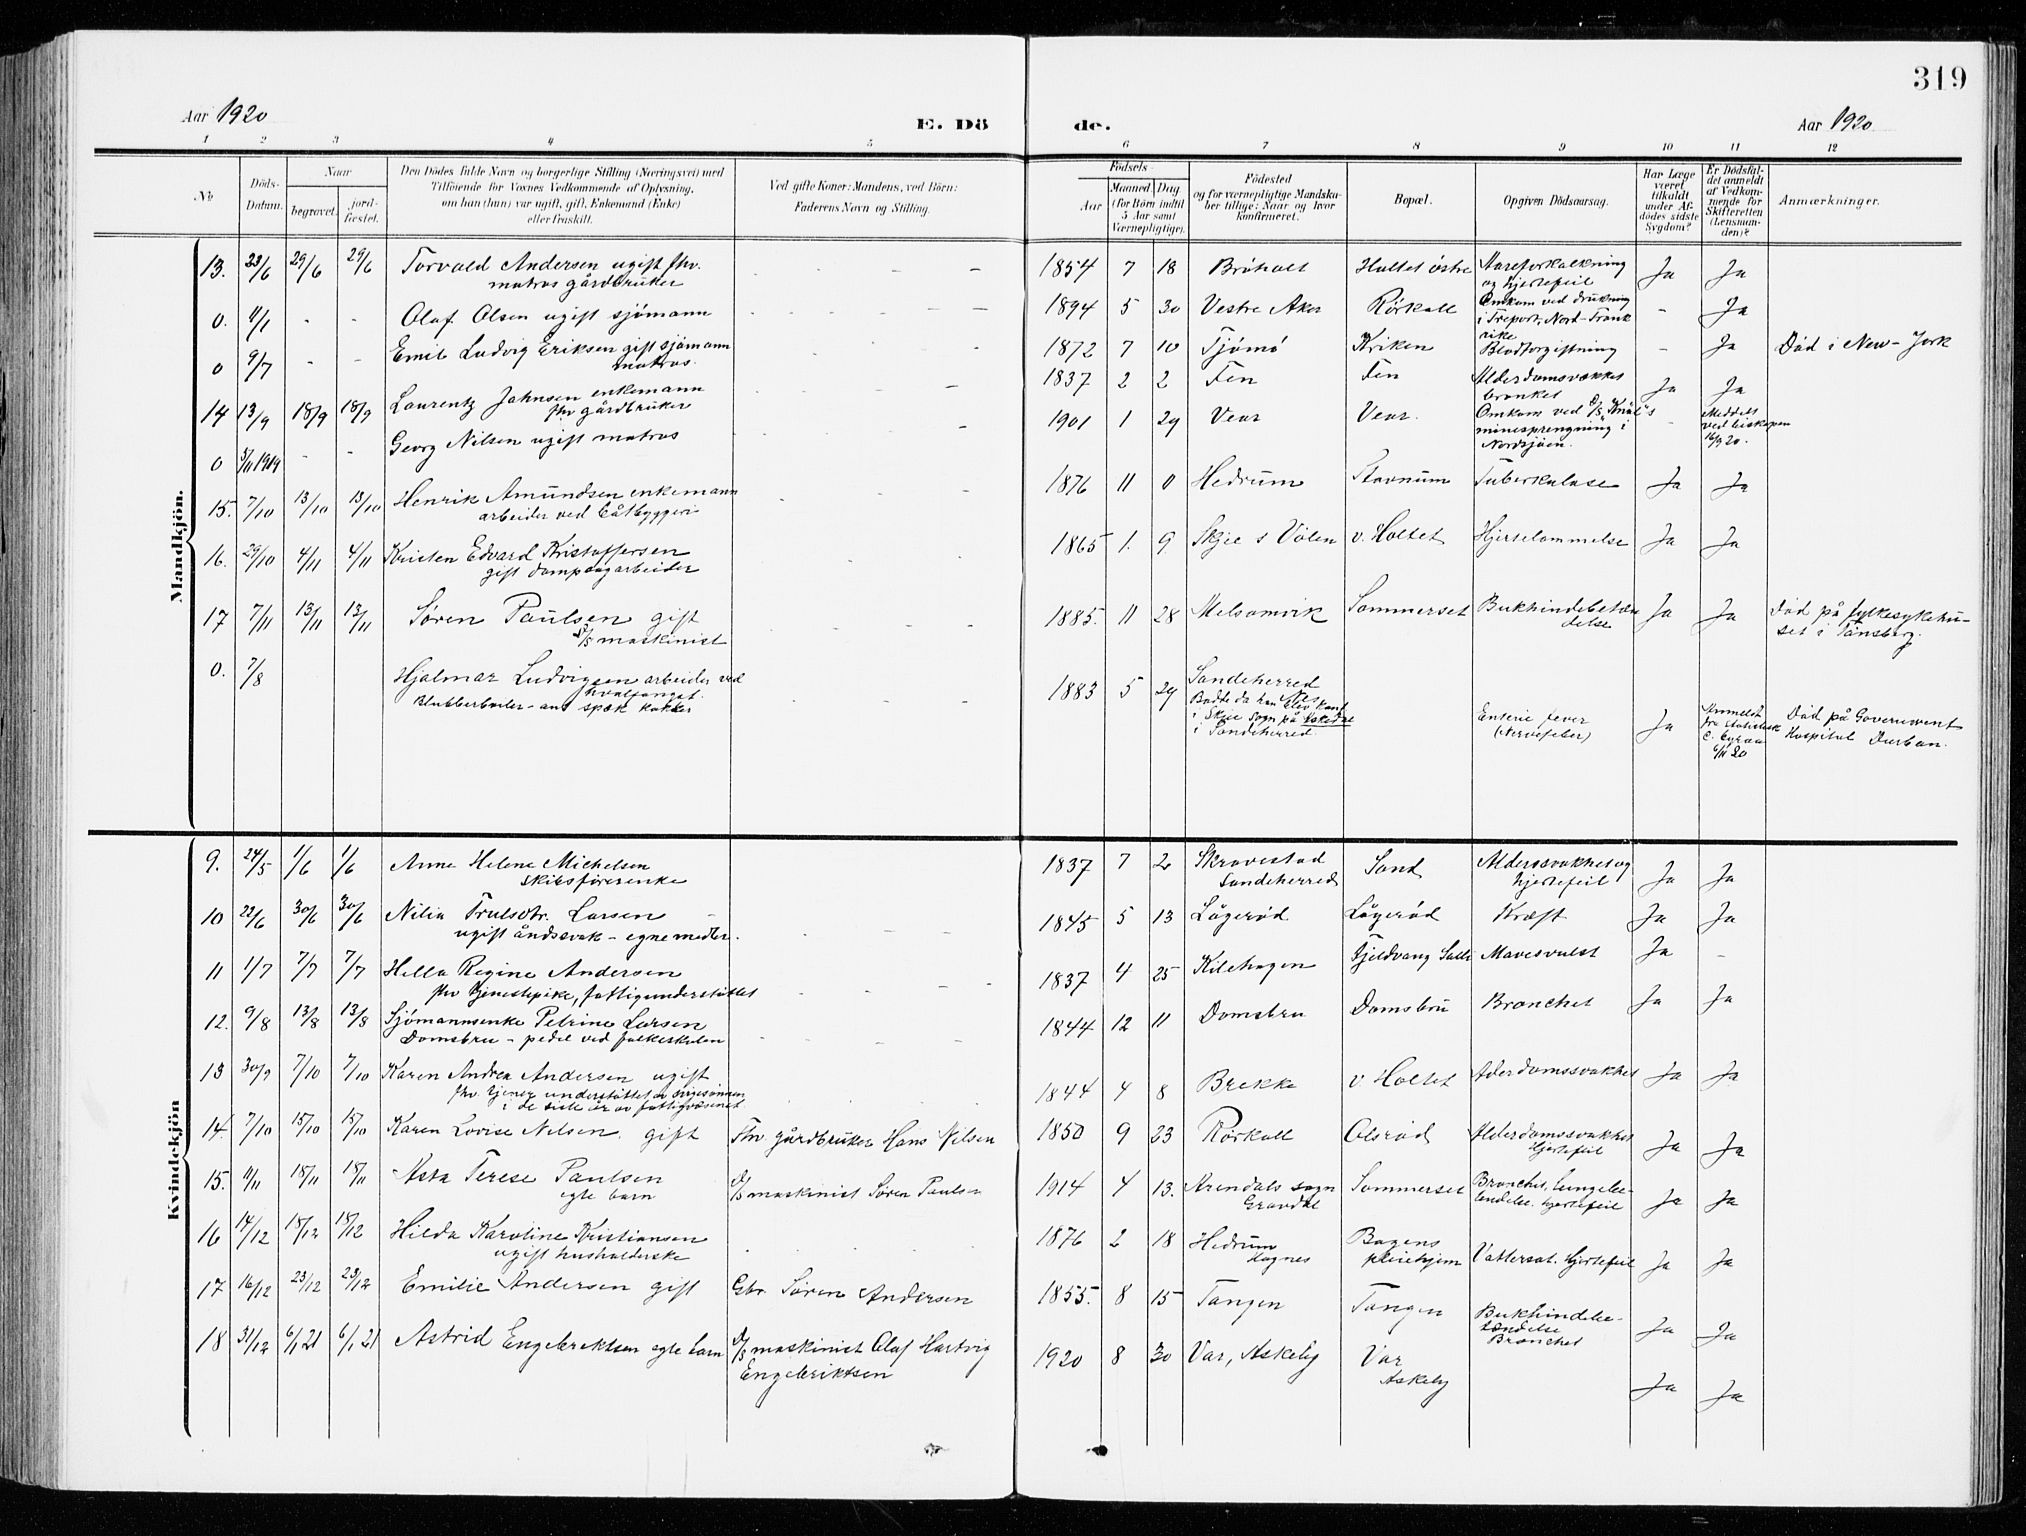 319
Aar 1920
E. Dö
de.
Aar 1920
1 2 3 4 5 6 7 8 9 10 11 12
No
Döds-Datum.
Naar
begravet.
jordfæstet.
Den Dödes fulde Navn og borgerlige Stilling (Næringsvei) med
Tilföiende for Voxnes Vedkommende af Oplysning,
om han (hun) var ugift, gift, Enkemand (Enke)
eller fraskilt.
Ved gifte Koner: Mandens, ved Börn:
Faderens Navn og Stilling.
Födsels-
Aar
Maaned. Dag
(for Börn indtil
5 Aar samt
Værnepligtige).
Födested
og for værnepligtige Mandska-
ber tillige: Naar og hvor
konfirmeret.
Bopæl.
Opgiven Dödsaarsag.
Har Læge
været
tilkaldt
under Af-
dödes sidste
Sygdom?
Er Dödsfal-
det anmeldt
af Vedkom-
mende for
Skifteretten
(Lensman-
den)?
Anmærkninger.
Mandkjön.
13. 23/6 29/6 29/6 Torvald Andersen ugift fhv.
matros gårdbruker
1854 7 18 Brøholt Holtet østre Åreforkalkning
og hjertefeil Ja Ja
0. 4/1 - - Olaf Olsen ugift sjømann
1894 5 30 Vestre Aker Rørkoll Omkom ved drukning
i Treport, Nord-Frank
rike - Ja
0 9/7 - - Emil Ludvig Eriksen gift sjømann
matros.
1872 7 10 Tjømø Kriken Blodforgiftning - Ja Død i New-York
14 13/9 18/9 18/9 Laurentz Johnsen enkemann
fhv gårdbruker
1837 2 2 Fen Fen Alderdomsvakhet
bronket Ja Ja
0 3/11 1919 - - Georg Nilsen ugift matros
1901 1 29 Vear Vear. Omkom ved D/S "Knut"s
minesprengning i
Nordsjøen. - Meddelt
ved biskopen
16/9 20.
15. 7/10 13/10 13/10 Henrik Amundsen enkemann
arbeider ved båtbyggeri
1876 11 0 Hedrum Stavnum Tuberkulose Ja Ja
16. 29/10 4/11 4/11 Kristen Edvard Kristoffersen
gift dampsagarbeider
1865 1. 9 Skjee s Vølen v. Holtet Hjertelammelse Ja Ja
17 7/11 13/11 13/11 Søren Paulsen gift
D/S maskinist
1885. 11 28 Melsomvik Sommerset Bukhindebetæn
delse Ja Ja Død på fylkesykehu-
set i Tønsberg.
0. 7/8 Hjalmar Ludvigsen arbeider ved
hvalfangst.
Blubberboiler - ant spæk kokker
1883 5 29 Sandeherred
Bodte da han blev konf
i Skjee sogn på
i Sandeherred.
Enteric fever
(Nervefeber) Ja Anmeldt
fra statistisk
C. byraa
6/11 20 Død på Government
Hospital Durban.
Kvindekjön
9. 24/5 1/6 1/6 Anne Helene Michelsen
skibsførerenke
1837 7 2 Skravestad
Sandeherred Sand Alderssvakhet og
hjertefeil Ja Ja
10 22/6 30/6 30/6 Nilia Trulsdtr. Larsen
ugift åndssvak - egne midler.
1845 5 13 Lågerød Lågerød Kræft Ja Ja
11 1/7 7/7 7/7 Hella Regine Andersen
fhv tjenestepike, fattigunderstøttet
1837 4 25 Kilehagen Fjeldvang Mavesvulst Ja -
12. 9/8 13/8 13/8 Sjømannsenke Petrine Larsen
Domsbru - pedel ved folkeskolen
1844 12 11 Domsbru Domsbru Bronchet Ja Ja
13 30/9 7/10 7/10 Karen Andrea Andersen ugift
fhv tjener understøttet av
i de siste år av fattigvæsenet.
1844 4 8 Brekke v. Holtet Alderdomssvakhet Ja Ja
14. 7/10 15/10 15/10 Karen Lovise Nilsen. gift Fhv. gårdbruker Hans Nilsen
1850 9 23 Rørkoll Olsrød Alderdomssvakhet
hjertefeil Ja Ja
15. 11/11 18/11 18/11 Asta Terese Paulsen
egte barn D/S maskinist Søren Paulsen
1914 4 13. Arendals sogn
Gravdal Sommerset Bronchit, lungebe-
tændelse. hjertefeil Ja Ja
16 14/12 18/12 18/12 Hilda Karoline Kristiansen
ugift husholderske
1876 2 18 Hedrum
Hognes Bogens
pleiehjem Vattersot. hjertefeil Ja Ja
17 16/12 23/12 23/12 Emilie Andersen gift Gbr. Søren Andersen
1855. 8 15 Tangen Tangen Bukhindebe-
tændelse
Bronchet Ja Ja
18 31/12 6/1 21 6/1 21 Astrid Engebriktsen egte barn D/S maskinist Olaf Hartvig
Engebriktsen
1920 8 30 Var, Askeby Var
Askeby Ja Ja